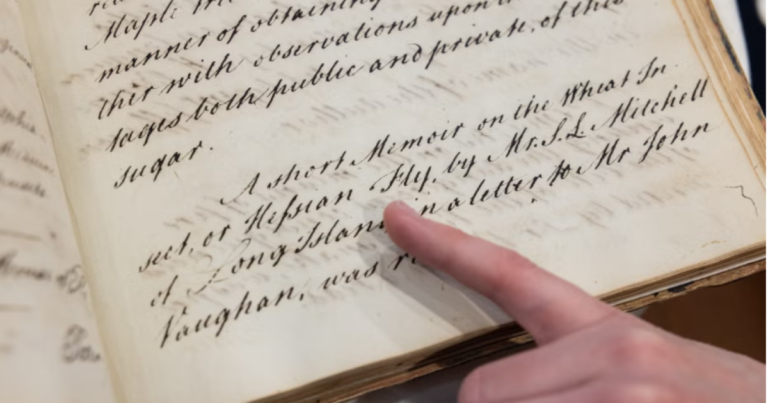 Maple
manner of obtaining
ther with observations upon
tages both public and private, of this
sugar.
A short Memoir on the Wheat In-
sect, or Hessian Fly, by Mr. S. L. Mitchell
of Long Island in a letter to Mr John
Vaughan, was